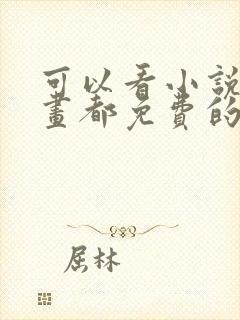 可以看小說
畫都免費的
屈林